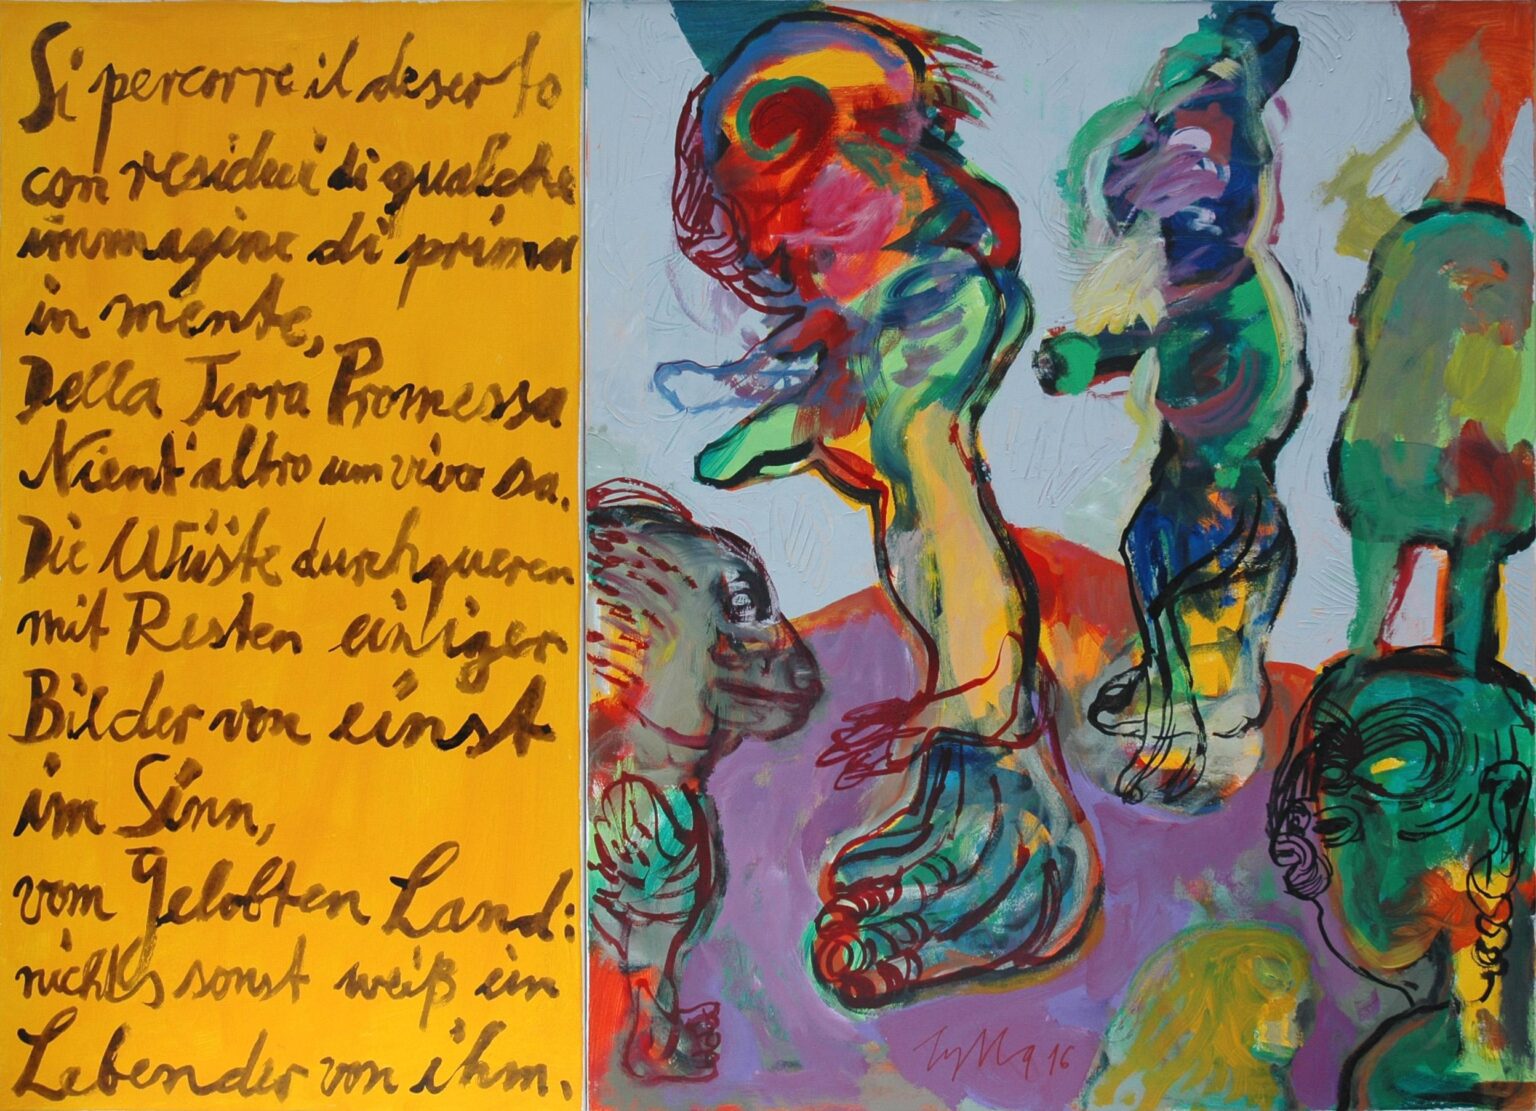 Si percorre il deserto
con residui di qualche
immagine di prima
in mente,
Della Terra Promessa
Nient'altro um vivo sa.
Die Wüste durchqueren
mit Resten einiger
Bilder von einst
im Sinn,
vom Gelobten Land:
nichts sonst weiß ein
Lebender von ihm.
16